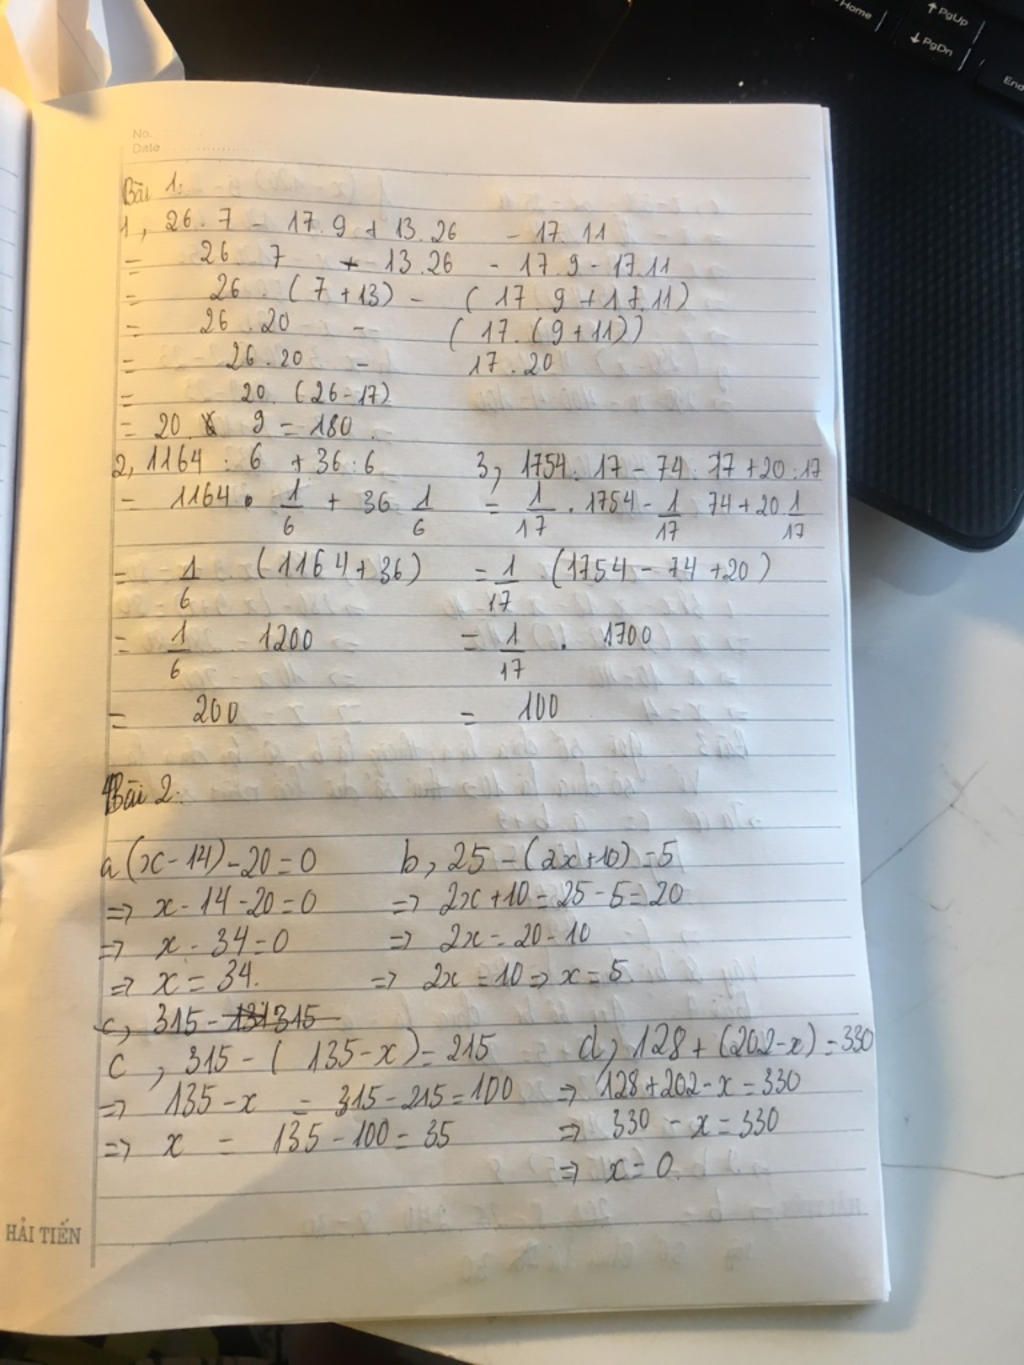 Home
↑ PgUp
↓ PgDn
End
No.
Date
Bài 1:
1, 26.7 - 17.9 + 13.26 - 17.11
= 26 7 + 13.26 - 17.9 - 17.11
= 26 . (7+13) - (17 9 + 17.11)
= 26.20 - (17.(9+11))
= 26.20 - 17.20
= 20. (26-17)
= 20 . 9 = 180.
2, 1164 : 6 + 36:6
= 1164 . 1/6 + 36 1/6
= 1/6 (1164+36)
= 1/6 - 1200
= 200
3, 1754: 17 - 74: 17 + 20:17
= 1/17 . 1754 - 1/17 74 + 20 1/17
= 1/17 . (1754 - 74 + 20)
= 1/17 . 1700
= 100
Bài 2:
a (x-14)-20=0
=> x-14-20=0
=> x-34=0
=> x = 34.
b, 25 - (2x+10) = 5
=> 2x+10 = 25-5=20
=> 2x = 20-10
=> 2x = 10 => x = 5.
c, 315 - 315
c , 315 - ( 135-x) = 215
=> 135-x = 315-215=100
=> x = 135-100=35
d, 128 + (202-x) = 330
=> 128+202-x = 330
=> 330 - x = 330
=> x = 0.
HẢI TIẾN